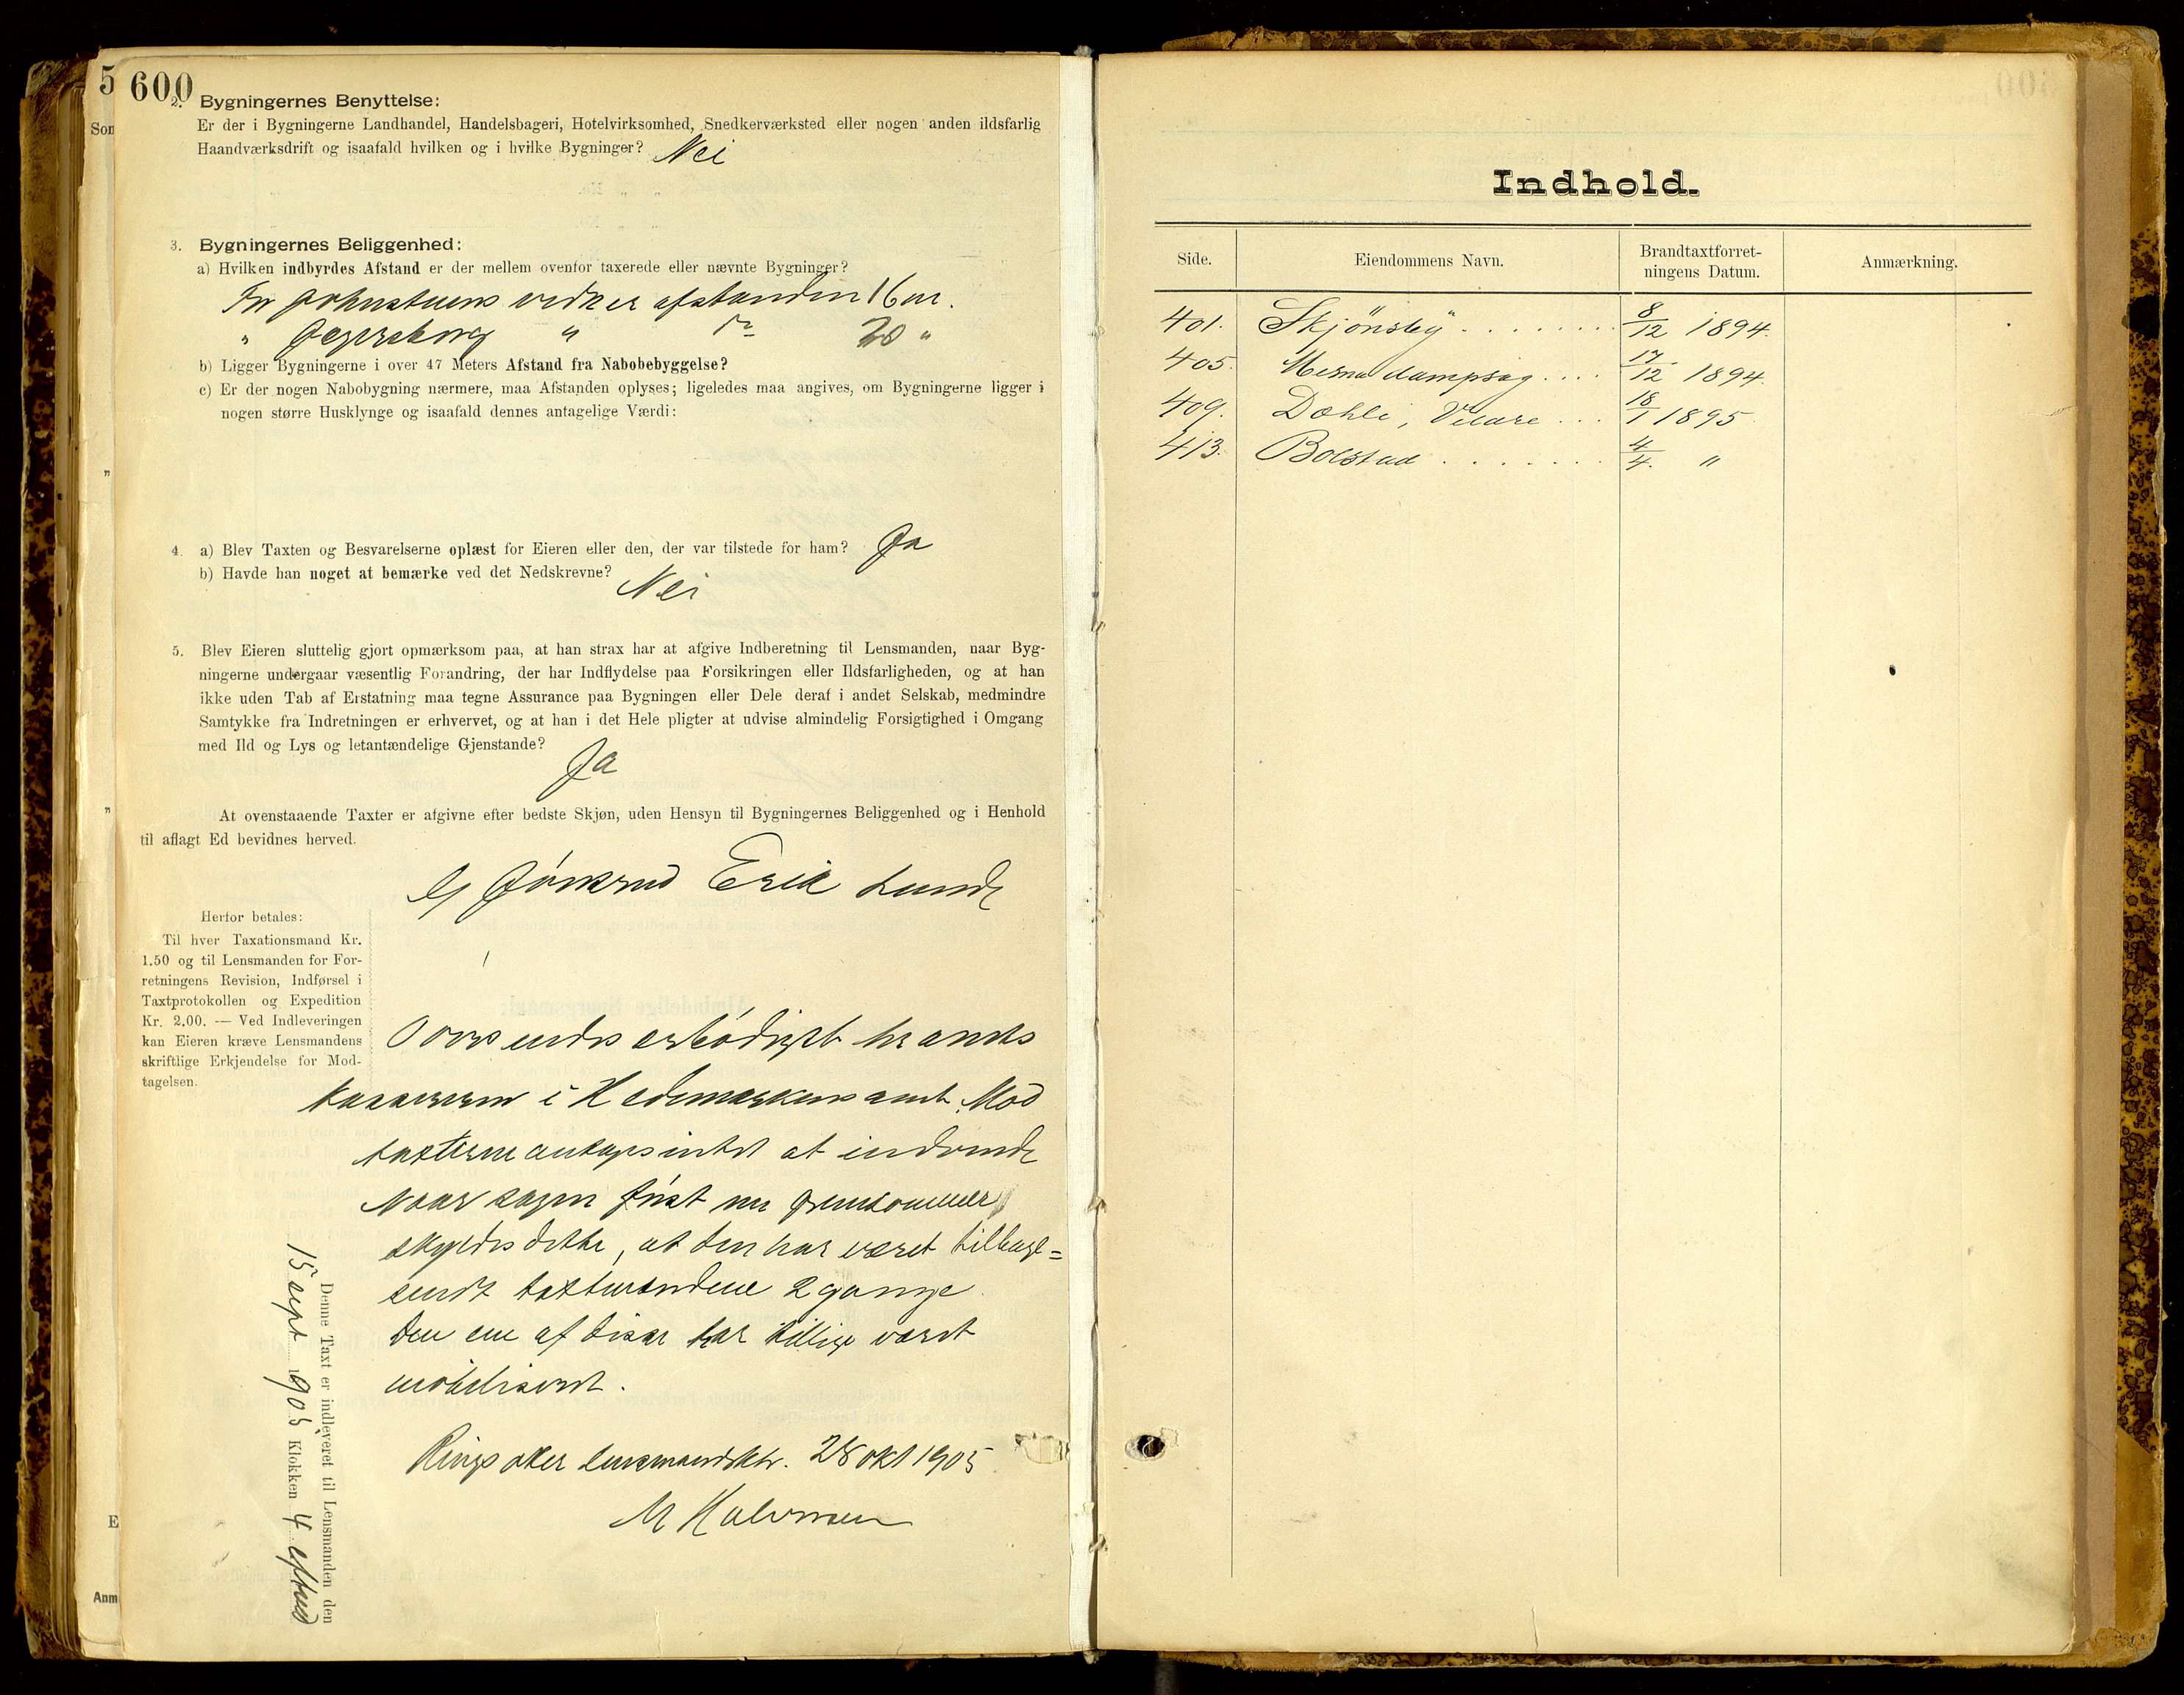 5
600
Son
2. Bygningernes Benyttelse:
Er der i Bygningerne Landhandel, Handelsbageri, Hotelvirksomhed, Snedkerværksted eller nogen anden ildsfarlig
Haandværksdrift og isaafald hvilken og i hvilke Bygninger? Nei
3. Bygningernes Beliggenhed:
a) Hvilken indbyrdes Afstand er der mellem ovenfor taxerede eller nævnte Bygninger?
afstanden 16 m.
" " 20 "
b) Ligger Bygningerne i over 47 Meters Afstand fra Nabobebyggelse?
c) Er der nogen Nabobygning nærmere, maa Afstanden oplyses; ligeledes maa angives, om Bygningerne ligger i
nogen større Husklynge og isaafald dennes antagelige Værdi:
4. a) Blev Taxten og Besvarelserne oplæst for Eieren eller den, der var tilstede for ham? Ja
b) Havde han noget at bemærke ved det Nedskrevne? Nei
5. Blev Eieren sluttelig gjort opmærksom paa, at han strax har at afgive Indberetning til Lensmanden, naar Byg-
ningerne undergaar væsentlig Forandring, der har Indflydelse paa Forsikringen eller Ildsfarligheden, og at han
ikke uden Tab af Erstatning maa tegne Assurance paa Bygningen eller Dele deraf i andet Selskab, medmindre
Samtykke fra Indretningen er erhvervet, og at han i det Hele pligter at udvise almindelig Forsigtighed i Omgang
med Ild og Lys og letantændelige Gjenstande?
Ja
At ovenstaaende Taxter er afgivne efter bedste Skjøn, uden Hensyn til Bygningernes Beliggenhed og i Henhold
til aflagt Ed bevidnes herved.
Erik Lunde
Herfor betales:
Til hver Taxationsmand Kr.
1.50 og til Lensmanden for For-
retningens Revision, Indførsel i
Taxtprotokollen og Expedition
Kr. 2.00. — Ved Indleveringen
kan Eieren kræve Lensmandens
skriftlige Erkjendelse for Mod-
tagelsen.
Oversendes ærbødigst hr amts
kassereren i Hedemarkens amt. Mod
taxterne antages intet at indvende
Naar sagen først nu fremkommer
skyldes dette, at den har været tilbage=
sendt taxtmændene 2 gange
Den ene af disse har tillige været
mobiliseret.
Ringsaker lensmandsktr. 28 okt 1905
M Halvorsen
Denne Taxt er indleveret til Lensmanden den
15 sept 1905 Klokken 4 eftmd
E
Anm
Indhold.
Side. Eiendommens Navn. Brandtaxtforret-
ningens Datum. Anmærkning.
401. Skjönsby . . . . . . . . 8/12 1894.
405. Mesna dampsag . . . . 17/12 1894.
409. Dæhli, . . . 18/1 1895.
413. Bolstad . . . . . . . 4/4. "